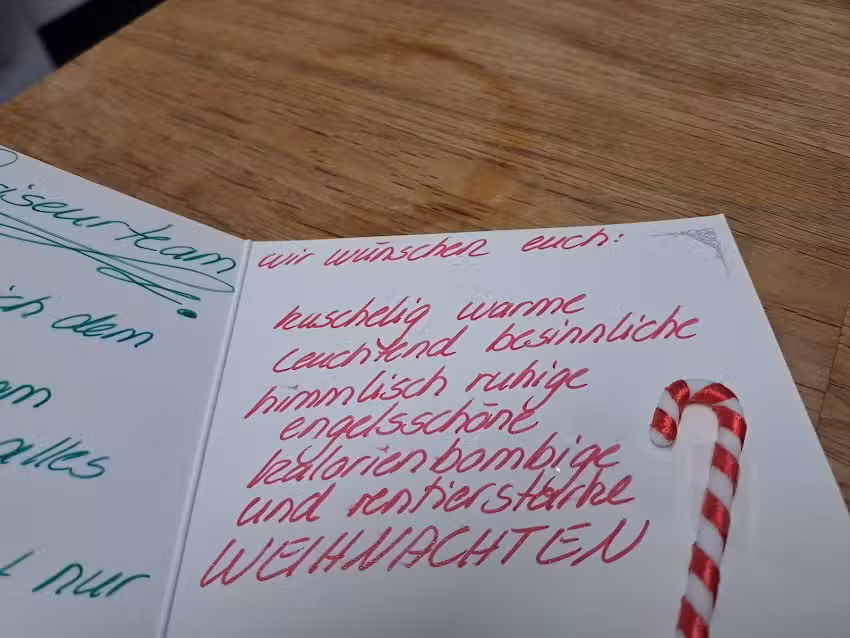 dem
alles
nur
wir wünschen euch:
kuschelig warme
leuchtend besinnliche
himmlisch ruhige
engelsschöne
kalorienbombige
und rentierstarke
WEIHNACHTEN